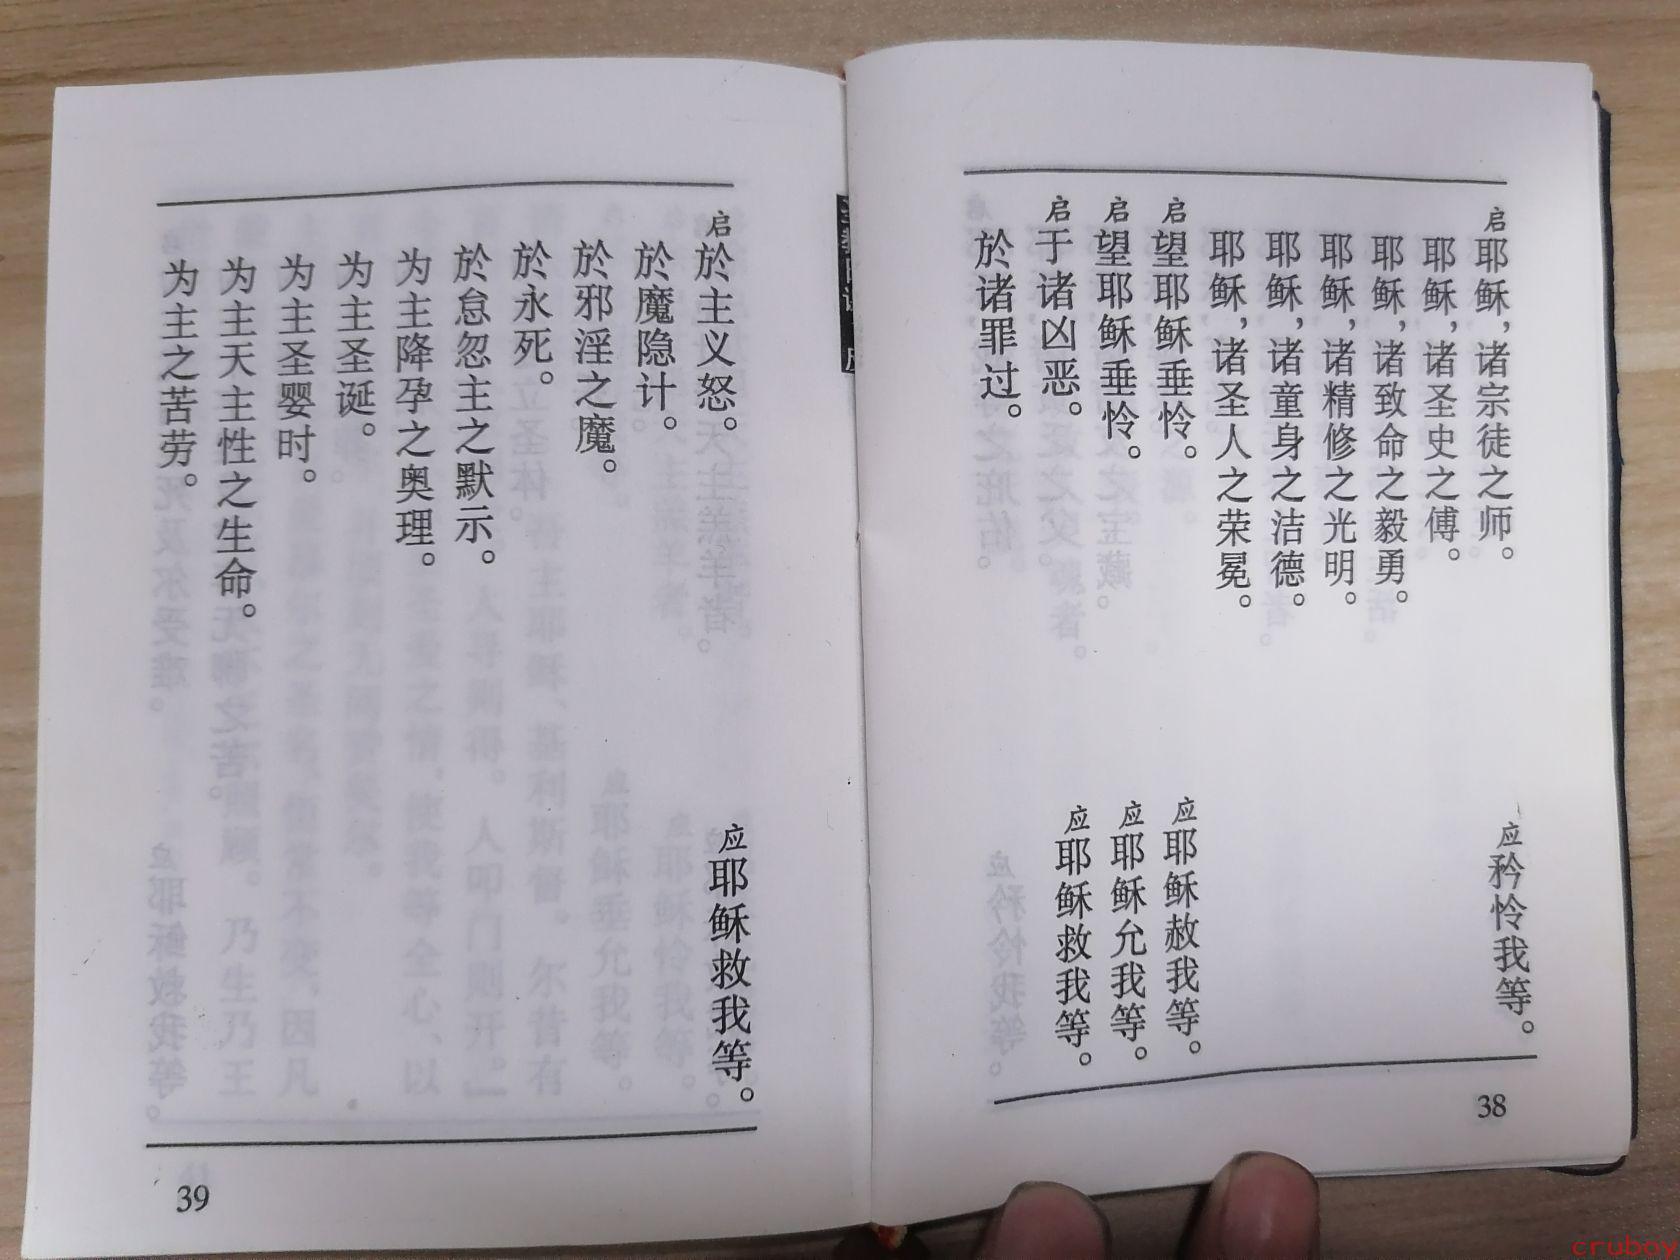 启耶稣，诸宗徒之师。 应矜怜我等。
耶稣，诸圣史之傅。
耶稣，诸致命之毅勇。
耶稣，诸精修之光明。
耶稣，诸童身之洁德。
耶稣，诸圣人之荣冕。
启望耶稣垂怜。 应耶稣赦我等。
启望耶稣垂怜。 应耶稣允我等。
启于诸凶恶。 应耶稣救我等。
於诸罪过。
38
启於主义怒。 应耶稣救我等。
於魔隐计。
於邪淫之魔。
於永死。
於怠忽主之默示。
为主降孕之奥理。
为主圣诞。
为主圣婴时。
为主天主性之生命。
为主之苦劳。
39
cruboy